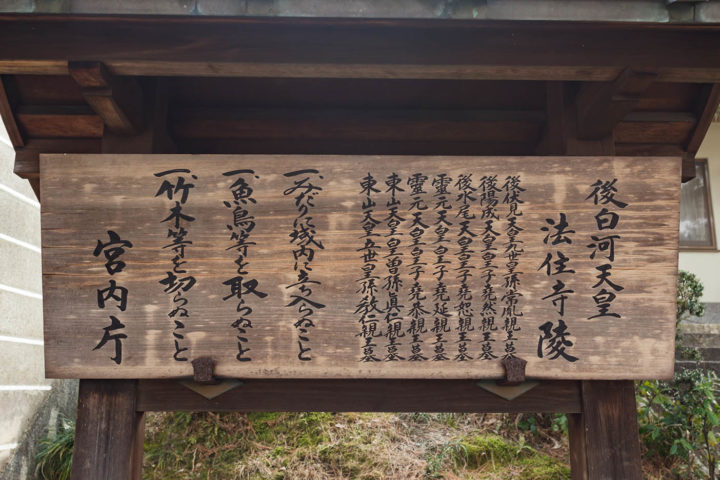 後白河天皇
法住寺陵
後伏見天皇五世皇孫常胤親王墓
後陽成天皇皇子堯然親王墓
後水尾天皇皇子堯恕親王墓
靈元天皇皇子堯延親王墓
靈元天皇皇子堯恭親王墓
東山天皇皇曽孫眞仁親王墓
東山天皇五世皇孫教仁親王墓
一みだりに域内に立ち入らぬこと
一魚鳥等を取らぬこと
一竹木等を切らぬこと
宮内庁